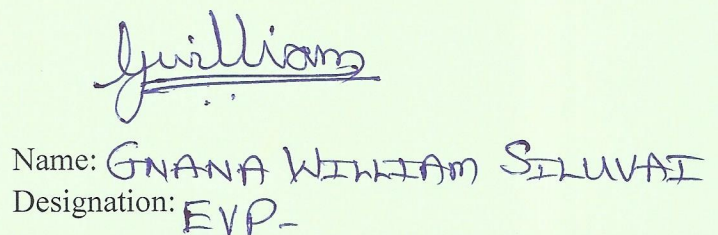 Gwilliam
Name: GNANA WILLIAM SILUVAI
Designation: EVP-